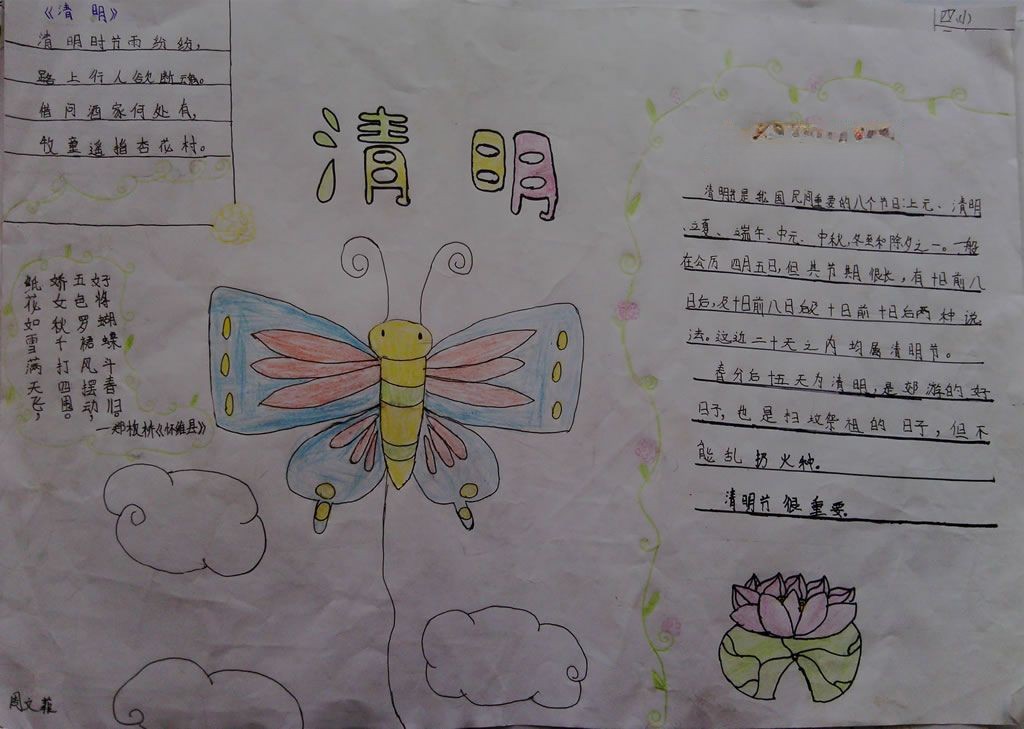 《清 明》
清明时节雨纷纷，
路上行人欲断魂。
借问酒家何处有，
牧童遥指杏花村。
四小
清明
纸花如雪满天飞，
娇女秋千打四围。
五色罗裙风摆动，
好将蝴蝶斗春归。
—郑板桥《怀潍县》
清明节是我国民间重要的八个节日：上元、清明
、立夏、端午、中元、中秋、冬至和除夕之一。一般
在公历四月五日，但其节期很长，有十日前八
日后，及十日前八日后及十日前十日后两种说
法。这近二十天之内均属清明节。
春分后十五天为清明，是郊游的好
日子，也是扫坟祭祖的日子，但不
能乱扔火种。
清明节很重要。
周文菲